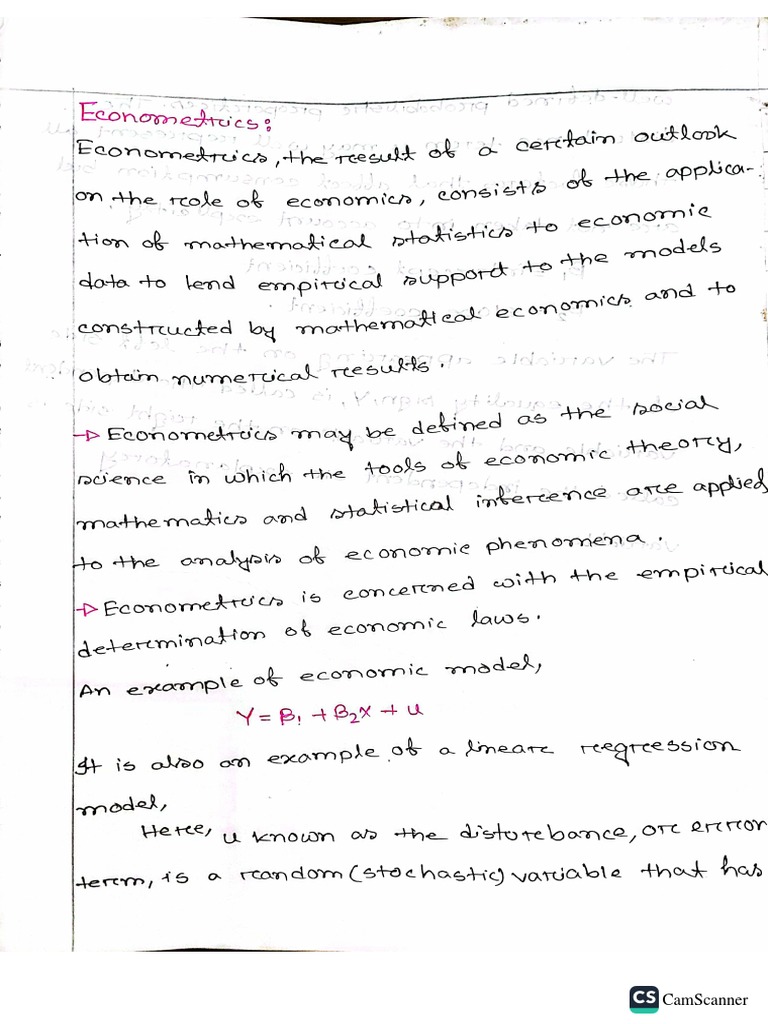 Econometrics:
Econometrics, the result of a certain outlook
on the role of economics, consists of the applica-
tion of mathematical statistics to economic
data to lend empirical support to the models
constructed by mathematical economics and to
obtain numerical results.
→ Econometrics may be defined as the social
science in which the tools of economic theory,
mathematics and statistical inference are applied
to the analysis of economic phenomena.
→ Econometrics is concerned with the empirical
determination of economic laws.
An example of economic model,
Y = β₁ + β₂X + u
It is also an example of a linear regression
model,
Here, u known as the disturbance, or error
term, is a random (stochastic) variable that has
CS CamScanner